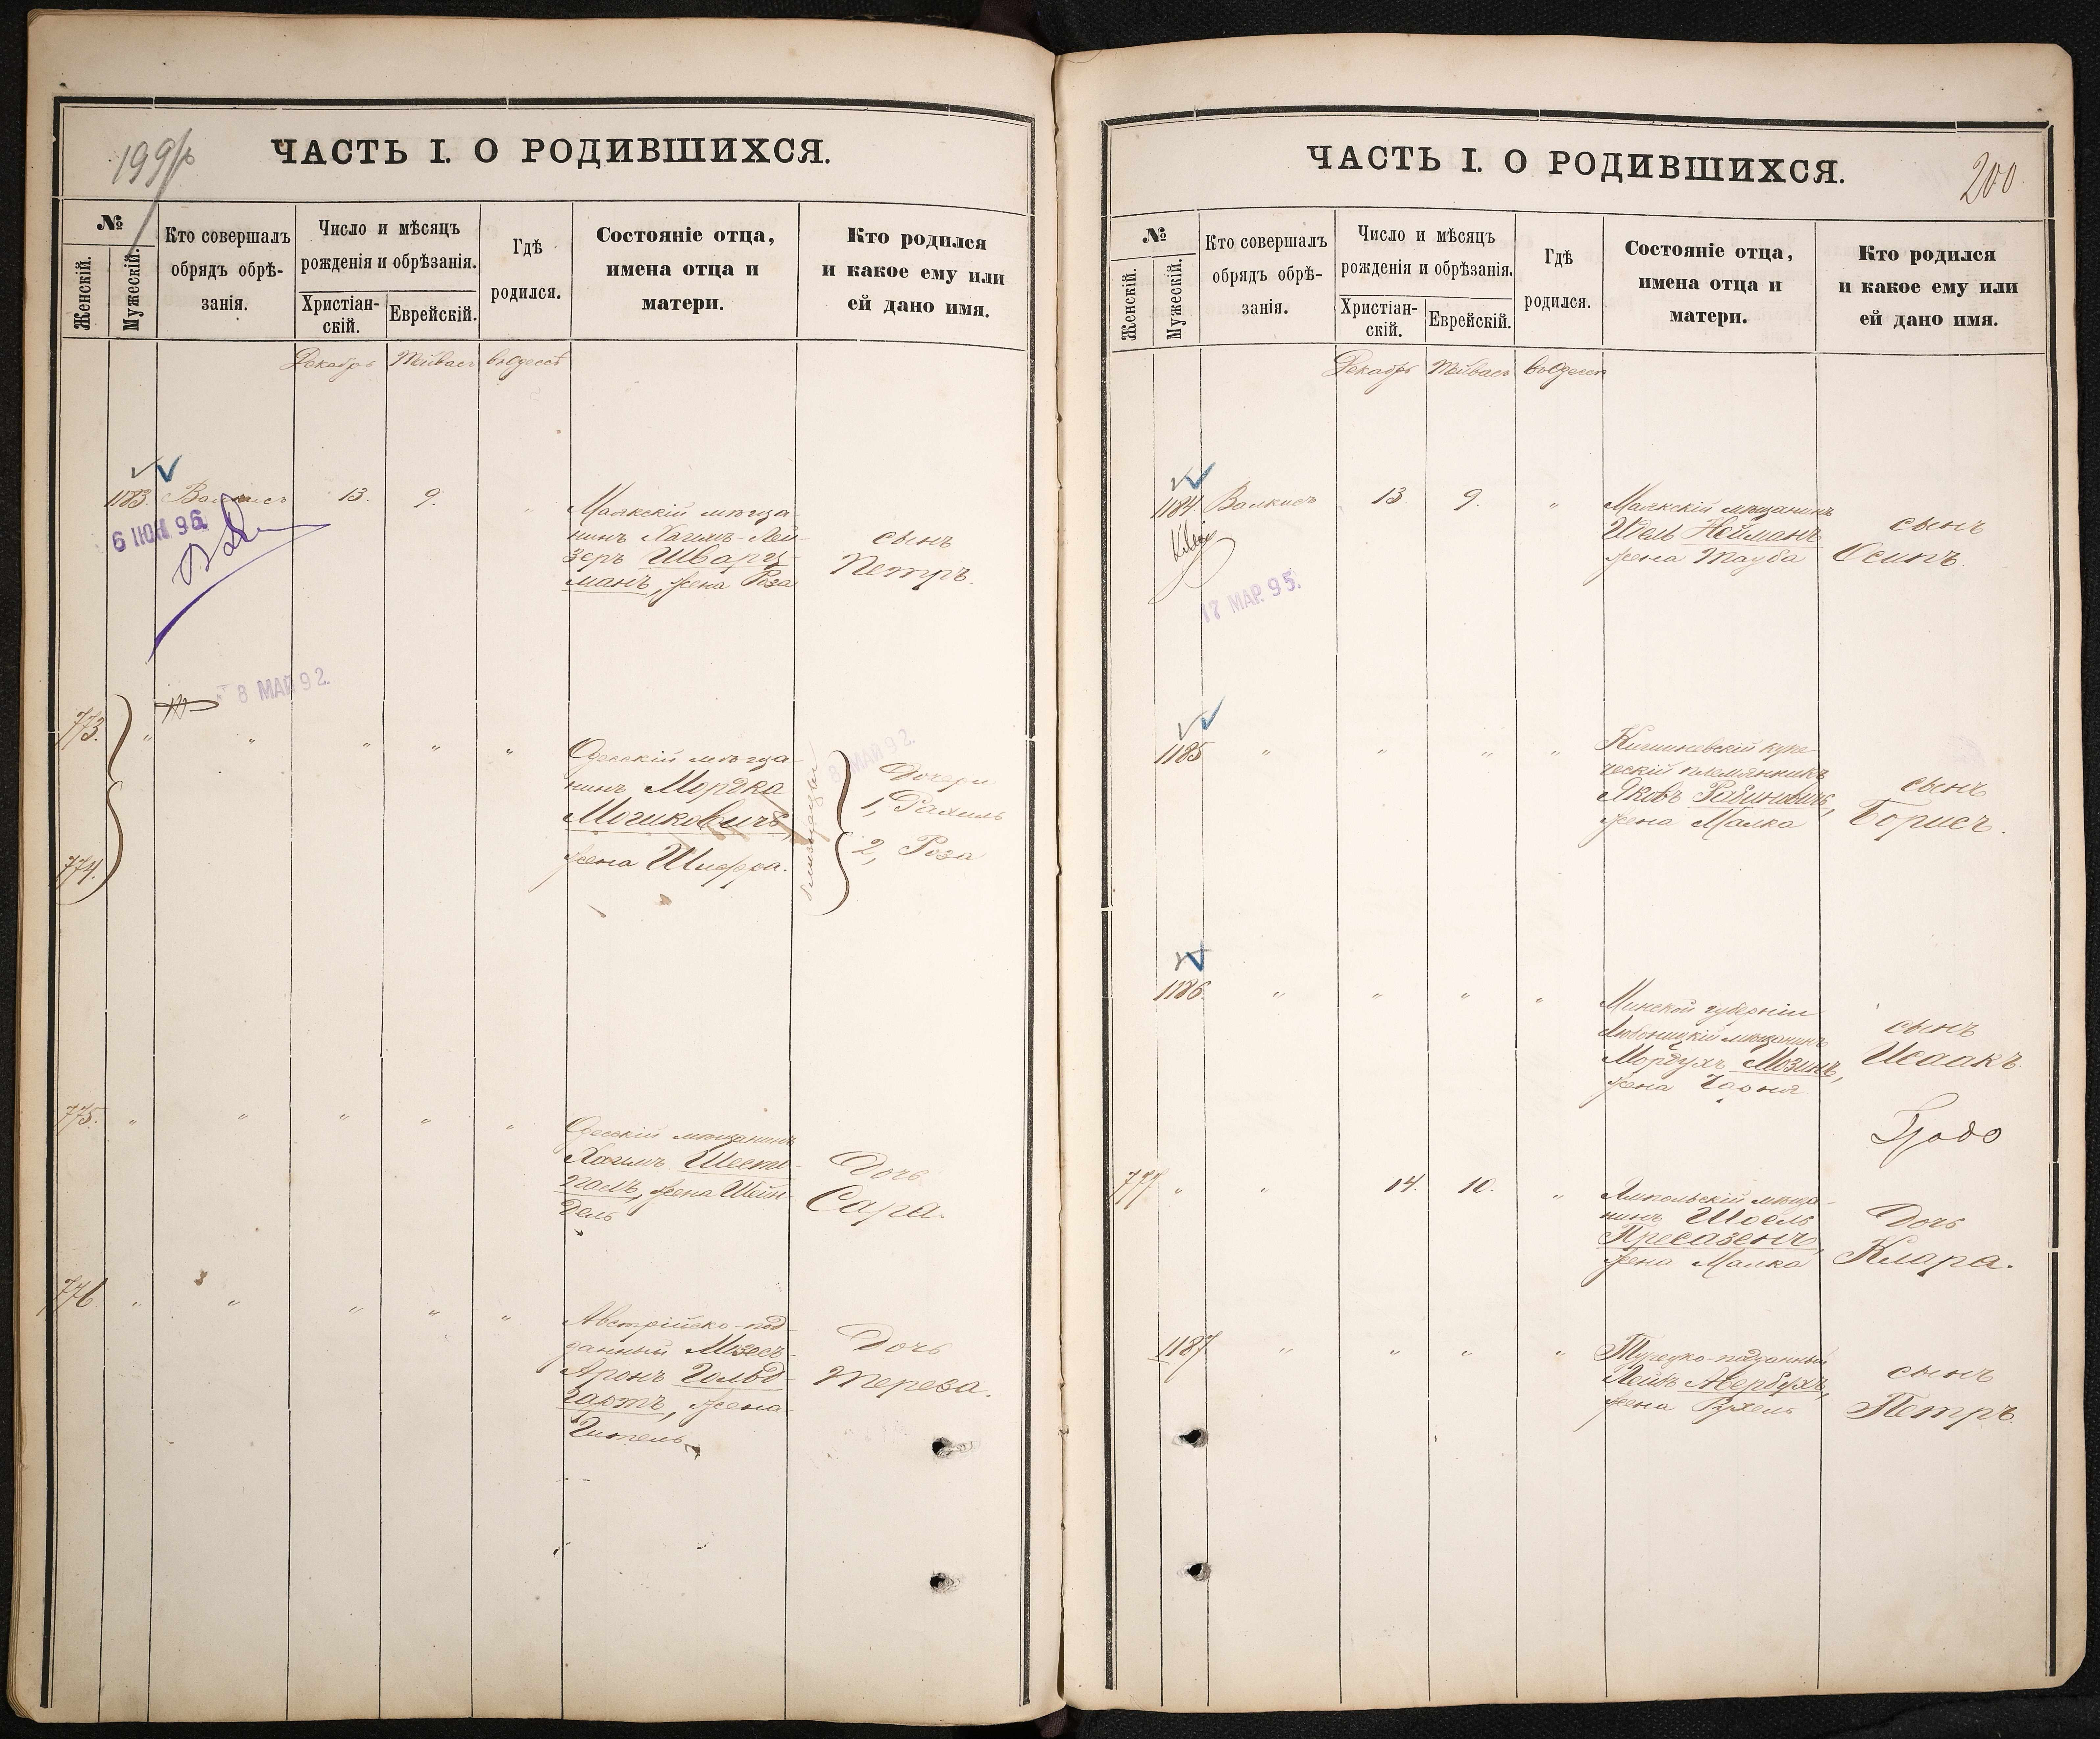 ЧАСТЬ I. О РОДИВШИХСЯ.
№
Женскій.
Мужескій.
Кто совершалъ
обрядъ обрѣ-
занія.
Число и мѣсяцъ
рожденія и обрѣзанія.
Христіан-
скій.
Еврейскій.
Гдѣ
родился.
Состояніе отца,
имена отца и
матери.
Кто родился
и какое ему или
ей дано имя.
Декабрь Тейвасъ въ Одессѣ
1183. 13. 9. "
Маякскій мѣща-
нинъ Хаимъ-Лей-
зеръ Шварц-
манъ, жена Роза
сынъ
Петръ.
6 ІЮН 96
8 МАЙ 92.
773. " " " " "
774.
Одесскій мѣща-
нинъ Мордка
Могиковичъ,
жена Шифра.
близнецы
8 МАЙ 92.
Дочери
1, Рахиль
2, Роза
775. " " " " "
Одесскій мѣщанинъ
Хаимъ
жена Шейн-
дель
Дочь
Сара.
776 " " " " "
Австрійско-под-
данный Мозесъ-
Аронъ Гольд-
гартъ, жена
Гитель
Дочь
Тереза.
ЧАСТЬ I. О РОДИВШИХСЯ.
200.
№
Женскій.
Мужескій.
Кто совершалъ
обрядъ обрѣ-
занія.
Число и мѣсяцъ
рожденія и обрѣзанія.
Христіан-
скій.
Еврейскій.
Гдѣ
родился.
Состояніе отца,
имена отца и
матери.
Кто родился
и какое ему или
ей дано имя.
Декабрь Тейвасъ въ Одессѣ
1184. Валкисъ 13. 9. "
Маякскій мѣщанинъ
Идель Нейманъ
жена Тауба
сынъ
Осипъ.
17 МАР. 95.
1185 " " " "
Кишиневскій купе-
ческій племянникъ
Яковъ Рабиновичъ,
жена Малка
сынъ
Борисъ.
1186. " " " "
Минской губерніи
мѣщанинъ
Мордухъ Мозинъ,
жена Чарня
сынъ
Исаакъ.
777 " " 14. 10. "
Ямпольскій мѣща-
нинъ Шоель
жена Малка
Дочь
Клара.
1187 " " " "
Турецко-подданный
Лейбъ Авербухъ,
жена Рухель
сынъ
Петръ.